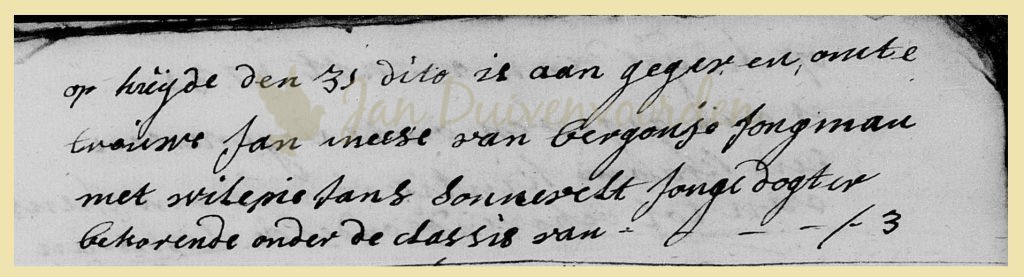 op huijde den 31 dito is aan gegeven omte
trouwe Jan meese van bergouje Jongman
met wilemie Jans Sonnevelt Jonge dogter
behorende onder de classis van - - - - f - 3
Jan Duivenvoorden